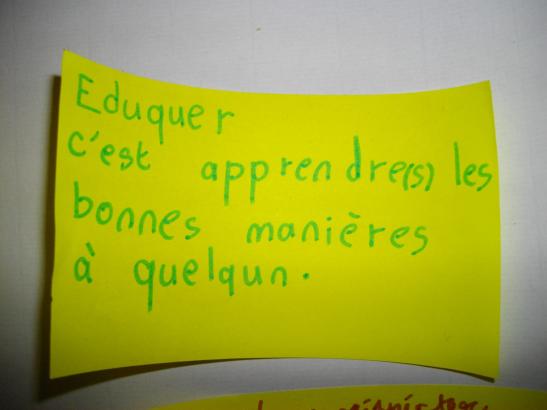 Eduquer
c'est apprendre(s) les
bonnes manières
à quelqun.